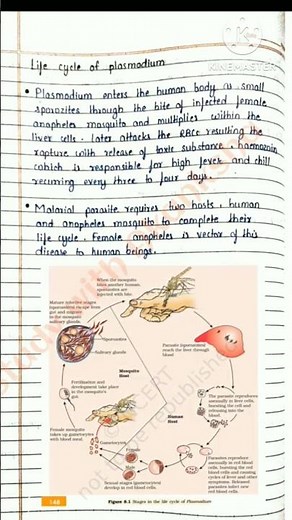 KINEMASTER
Life cycle of plasmodium
• Plasmodium enters the human body as small
sporozites through the bite of injected female
anopheles mosquito and multiplies within the
liver cells. Later attacks the RBCs resulting the
rapture with release of toxic substance, haemozoin
which is responsible for high fever and chill
recurring every three to four days.
• Malarial parasite requires two hosts, human
and anopheles mosquito to complete their
life cycle. Female anopheles is vector of this
disease to human beings.
When the mosquito
bites another human,
sporozoites are
injected with bite
Mature infective stages
(sporozoites) escape from
gut and migrate
to the mosquito
salivary glands
Sporozoites
Salivary glands
Parasite (sporozoites)
reach the liver through
blood
Mosquito
Host
Fertilisation and
development take place
in the mosquito's
gut
Human
Host
The parasite reproduces
asexually in liver cells,
bursting the cell and
releasing into the
blood
Female mosquito
takes up gametocytes
with blood meal
Gametocytes
Female
Male
Parasites reproduce
asexually in red blood
cells, bursting the red
blood cells and causing
cycles of fever and other
symptoms. Released
parasites infect new
red blood cells
Sexual stages (gametocytes)
develop in red blood cells
not to be republished
148
Figure 8.1 Stages in the life cycle of Plasmodium